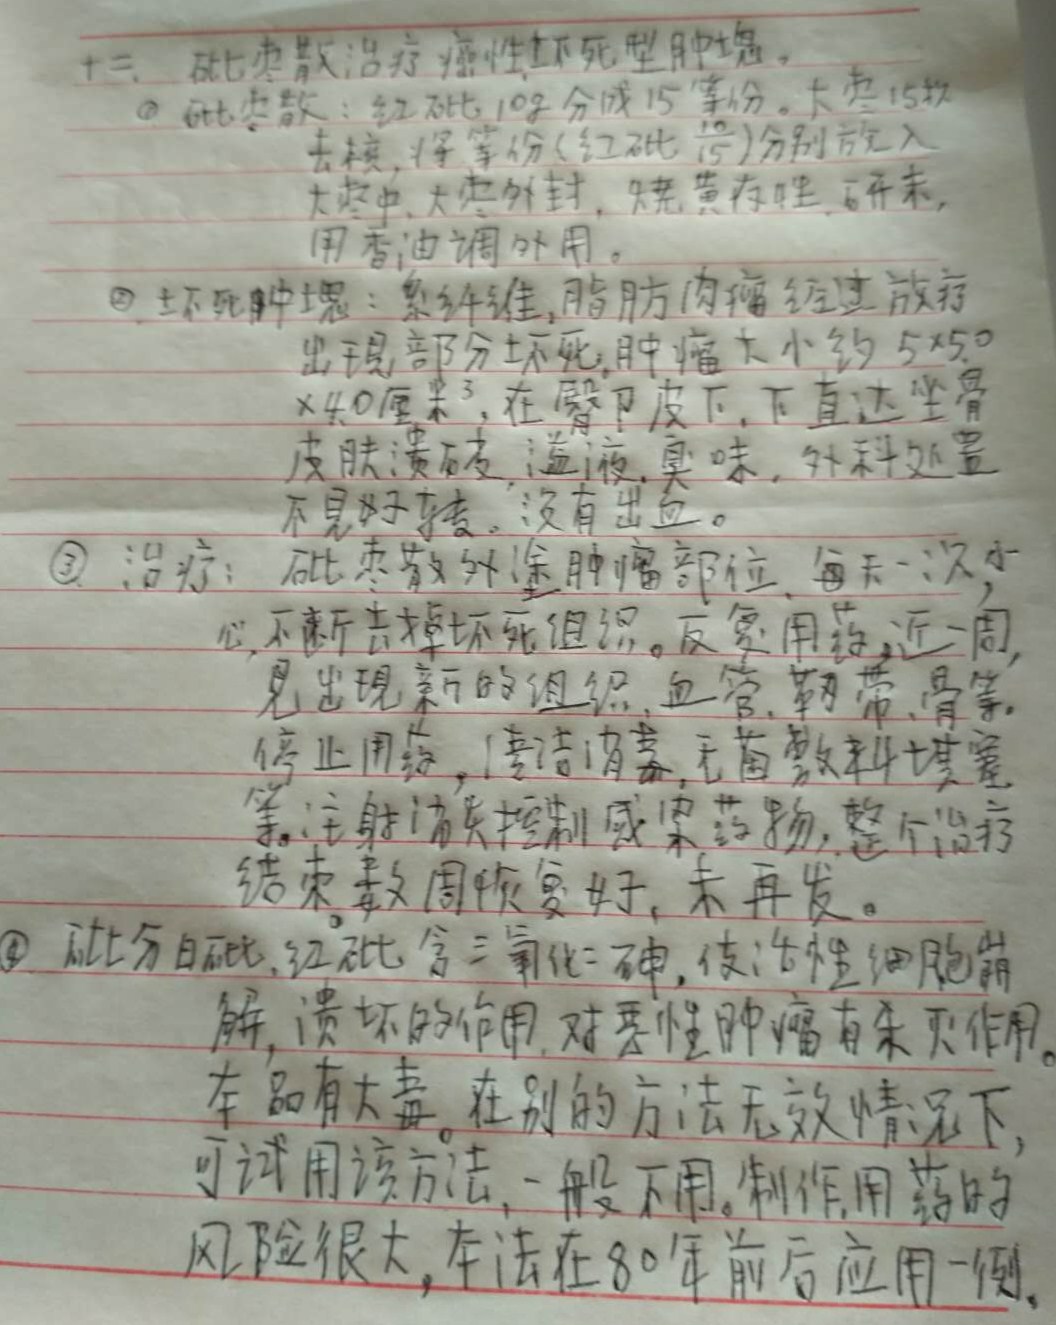 十二、砒枣散治疗癌性坏死型肿块。
① 砒枣散：红砒10g分成15等份。大枣15枚
去核，将等份（红砒10/15）分别放入
大枣中、大枣外封，烧黄存性、研末，
用香油调外用。
② 坏死肿块：系纤维，脂肪肉瘤经过放疗
出现部分坏死，肿瘤大小约5×5.0
×4.0厘米³，在臀下皮下，下直达坐骨
皮肤溃破，溢液，臭味，外科处置
不见好转。没有出血。
③ 治疗：砒枣散外涂肿瘤部位、每天一次，小
心，不断去掉坏死组织。反复用药，近一周，
见出现新的组织、血管、韧带、骨等。
停止用药，清洁消毒，无菌敷料填塞
等。注射消失控制感染药物，整个治疗
结束。数周恢复好，未再发。
④ 砒分白砒、红砒含三氧化二砷，使活性细胞崩
解，溃坏的作用，对恶性肿瘤有杀灭作用。
本品有大毒。在别的方法无效情况下，
可试用该方法，一般不用。制作，用药的
风险很大，本法在80年前后应用一例。